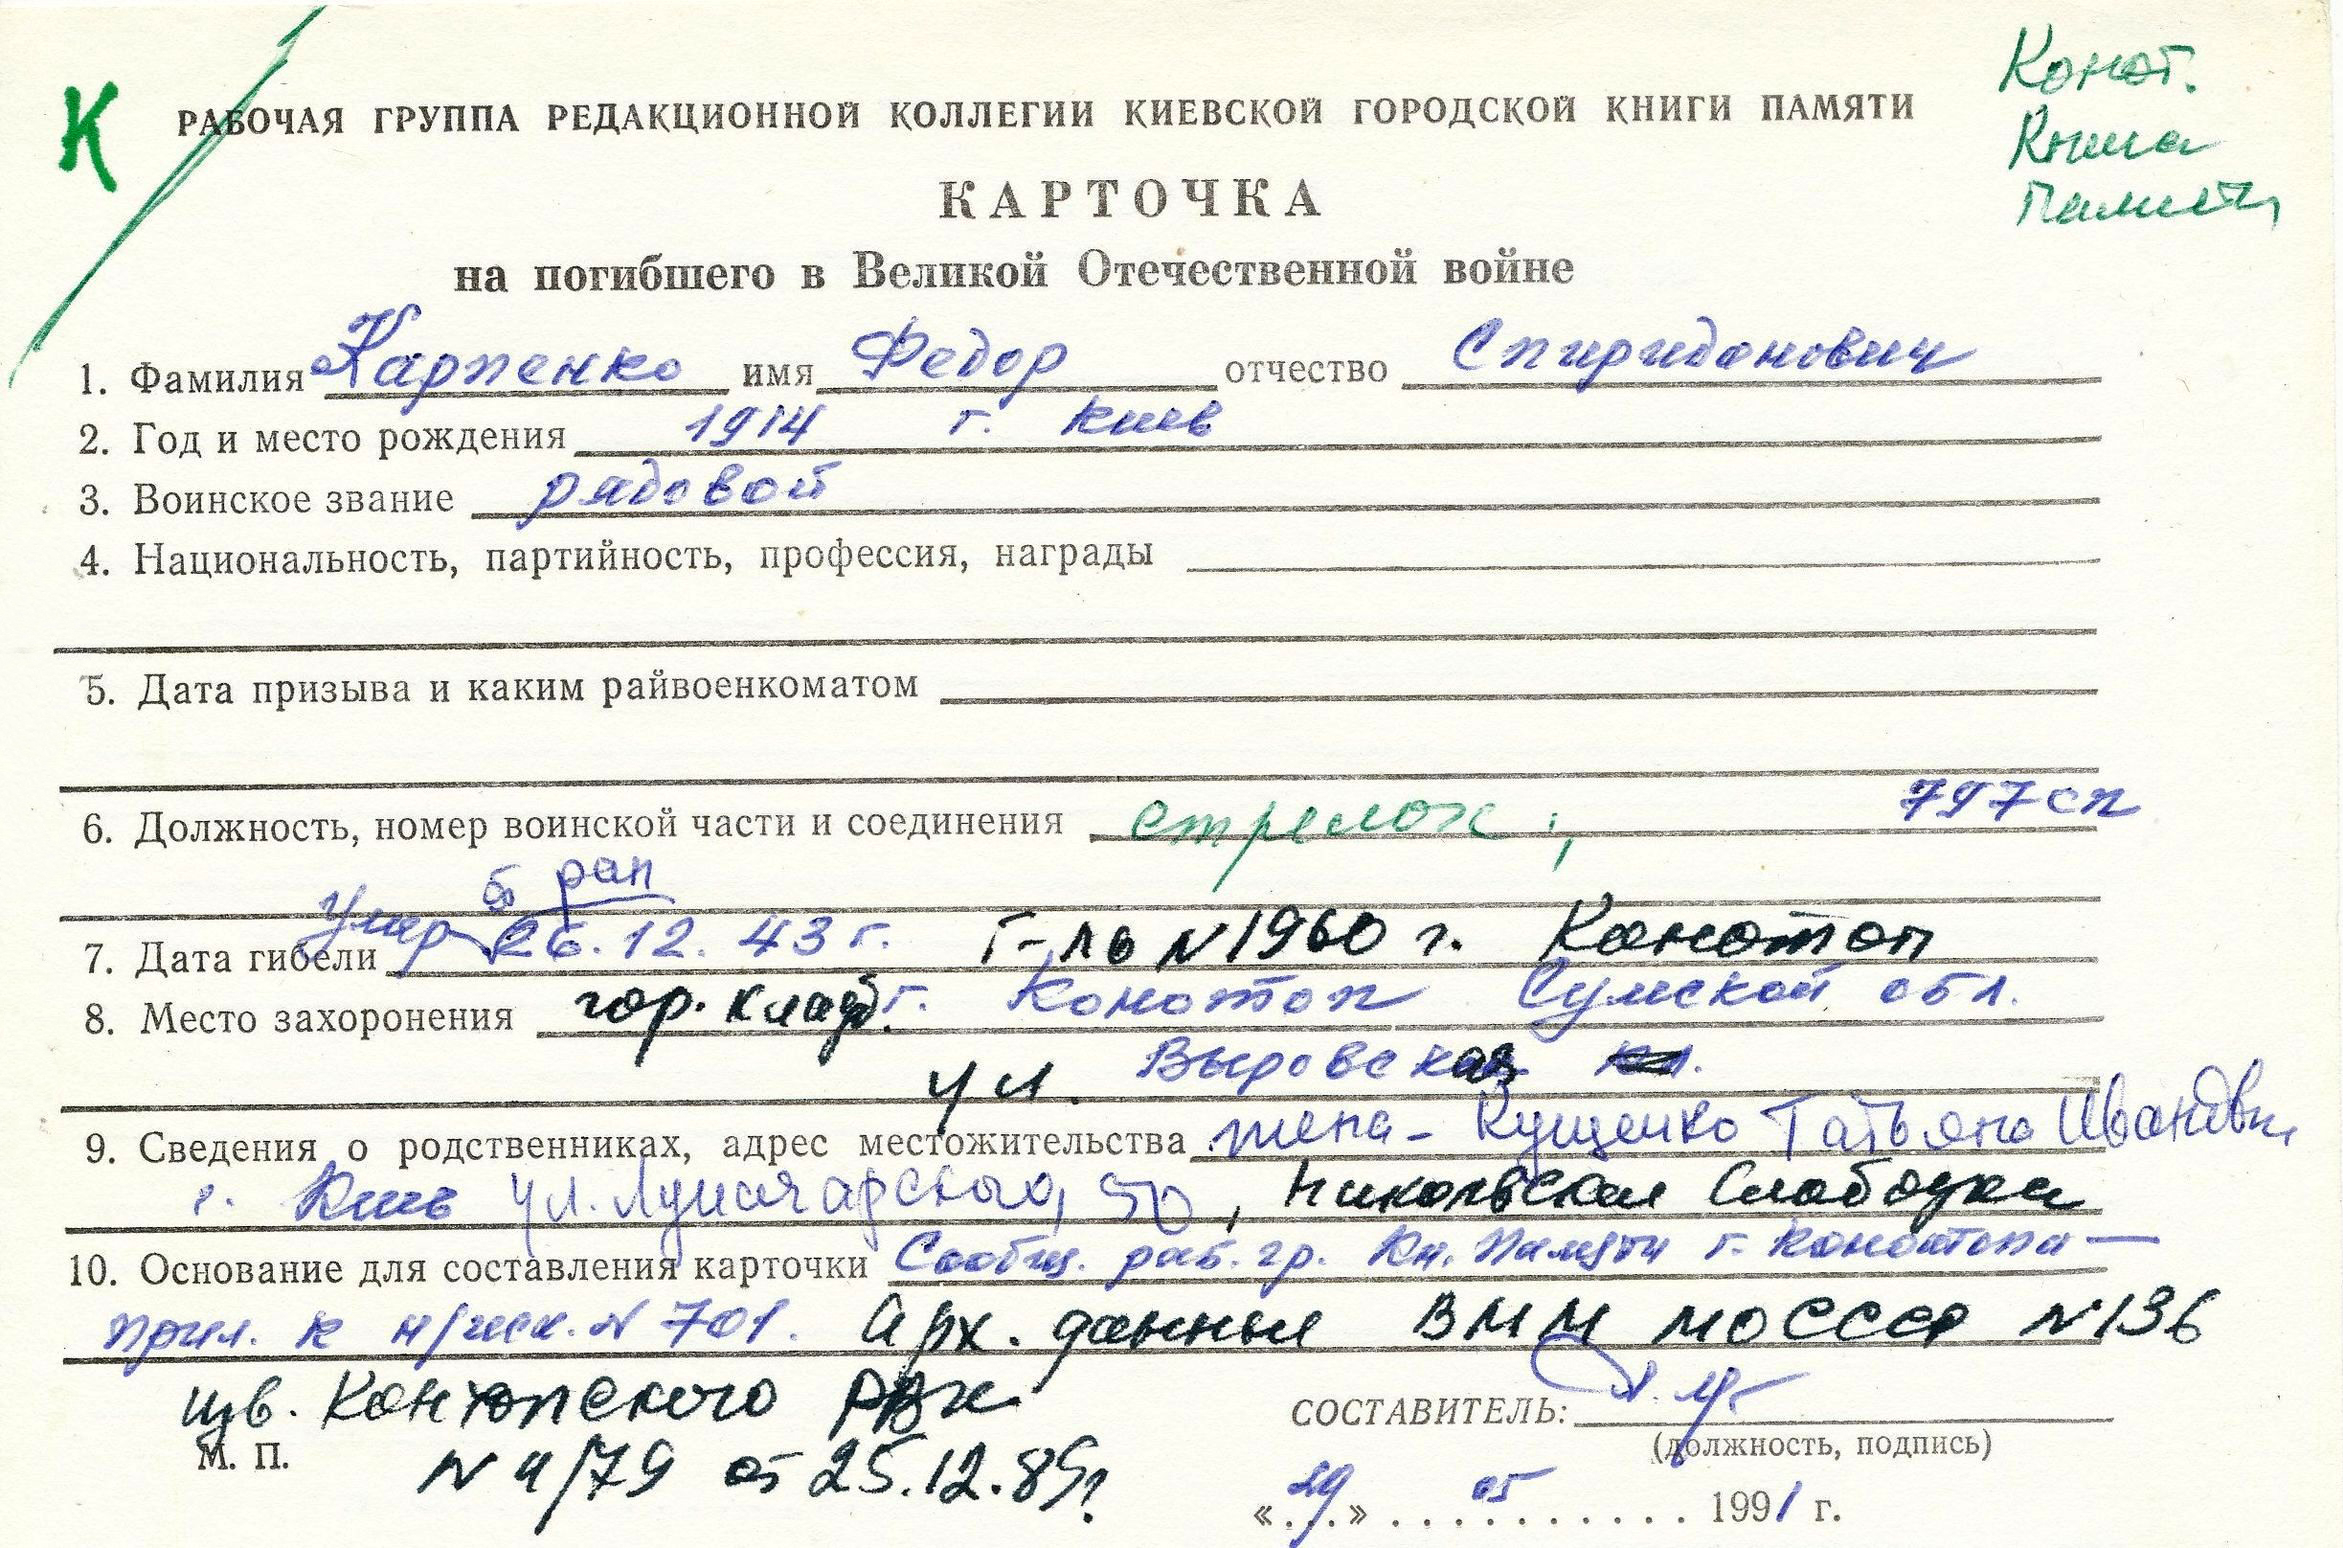 Конот.
К РАБОЧАЯ ГРУППА РЕДАКЦИОННОЙ КОЛЛЕГИИ КИЕВСКОЙ ГОРОДСКОЙ КНИГИ ПАМЯТИ
Книга
Памяти
КАРТОЧКА
на погибшего в Великой Отечественной войне
1. Фамилия Карпенко имя Федор отчество Спиридонович
2. Год и место рождения 1914 г. Киев
3. Воинское звание рядовой
4. Национальность, партийность, профессия, награды
5. Дата призыва и каким райвоенкоматом
6. Должность, номер воинской части и соединения стрелок; 797 сп
от ран
7. Дата гибели Умер 26.12.43 г. Г-ль N 1960 г. Конотоп
8. Место захоронения гор. кладб. г. Конотоп Сумской обл.
ул. Выровская
9. Сведения о родственниках, адрес местожительства жена - Кущенко Татьяна Ивановна
г. Киев ул. Луначарского, 50, Никольская Слободка
10. Основание для составления карточки Сообщ. раб. гр. Кн. Памяти г. Конотопа —
прил. к N 701. Арх. данные ВММ МО СССР N 136
изв. Конотопского РВК
СОСТАВИТЕЛЬ:
(должность, подпись)
М. П. N 4/79 от 25.12.89 г.
«29» 05 1991 г.